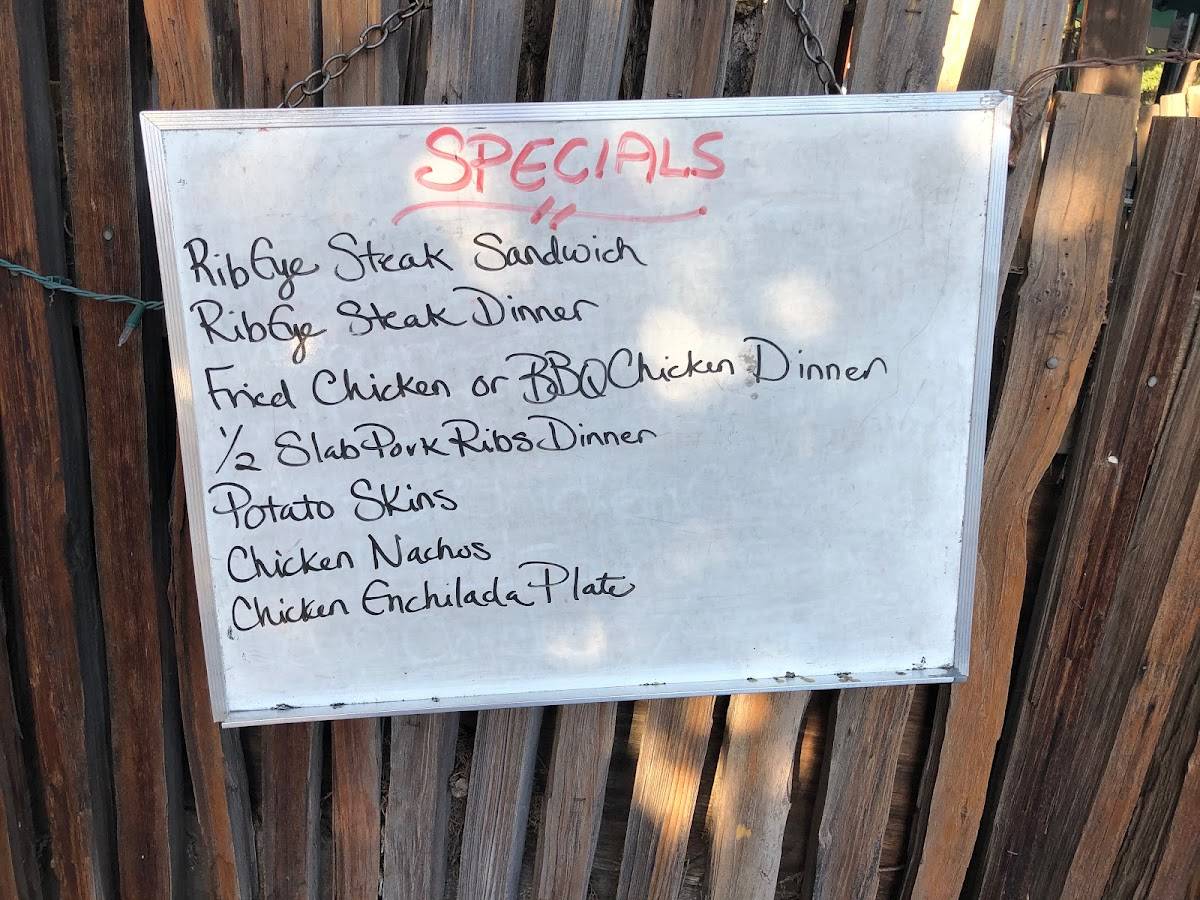 SPECIALS
RibEye Steak Sandwich
RibEye Steak Dinner
Fried Chicken or BBQ Chicken Dinner
1/2 Slab Pork Ribs Dinner
Potato Skins
Chicken Nachos
Chicken Enchilada Plate